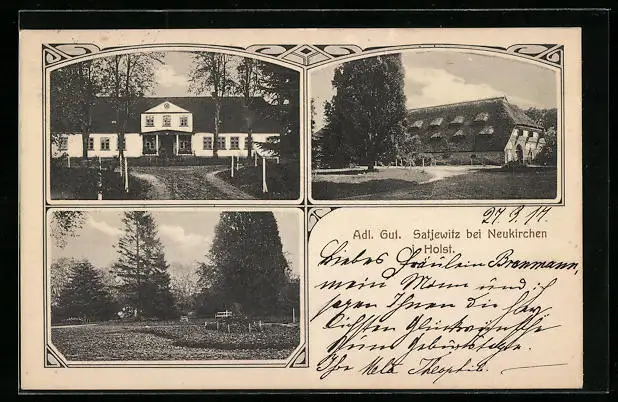 27.9.17.
Adl. Gut. Satjewitz bei Neukirchen
i. Holst.
Liebes Fräulein Brenmann,
mein Mann und ich
sagen Ihnen die herz
lichsten Glückwünsche
zum Geburtstage.
Ihre Meta Theophile.